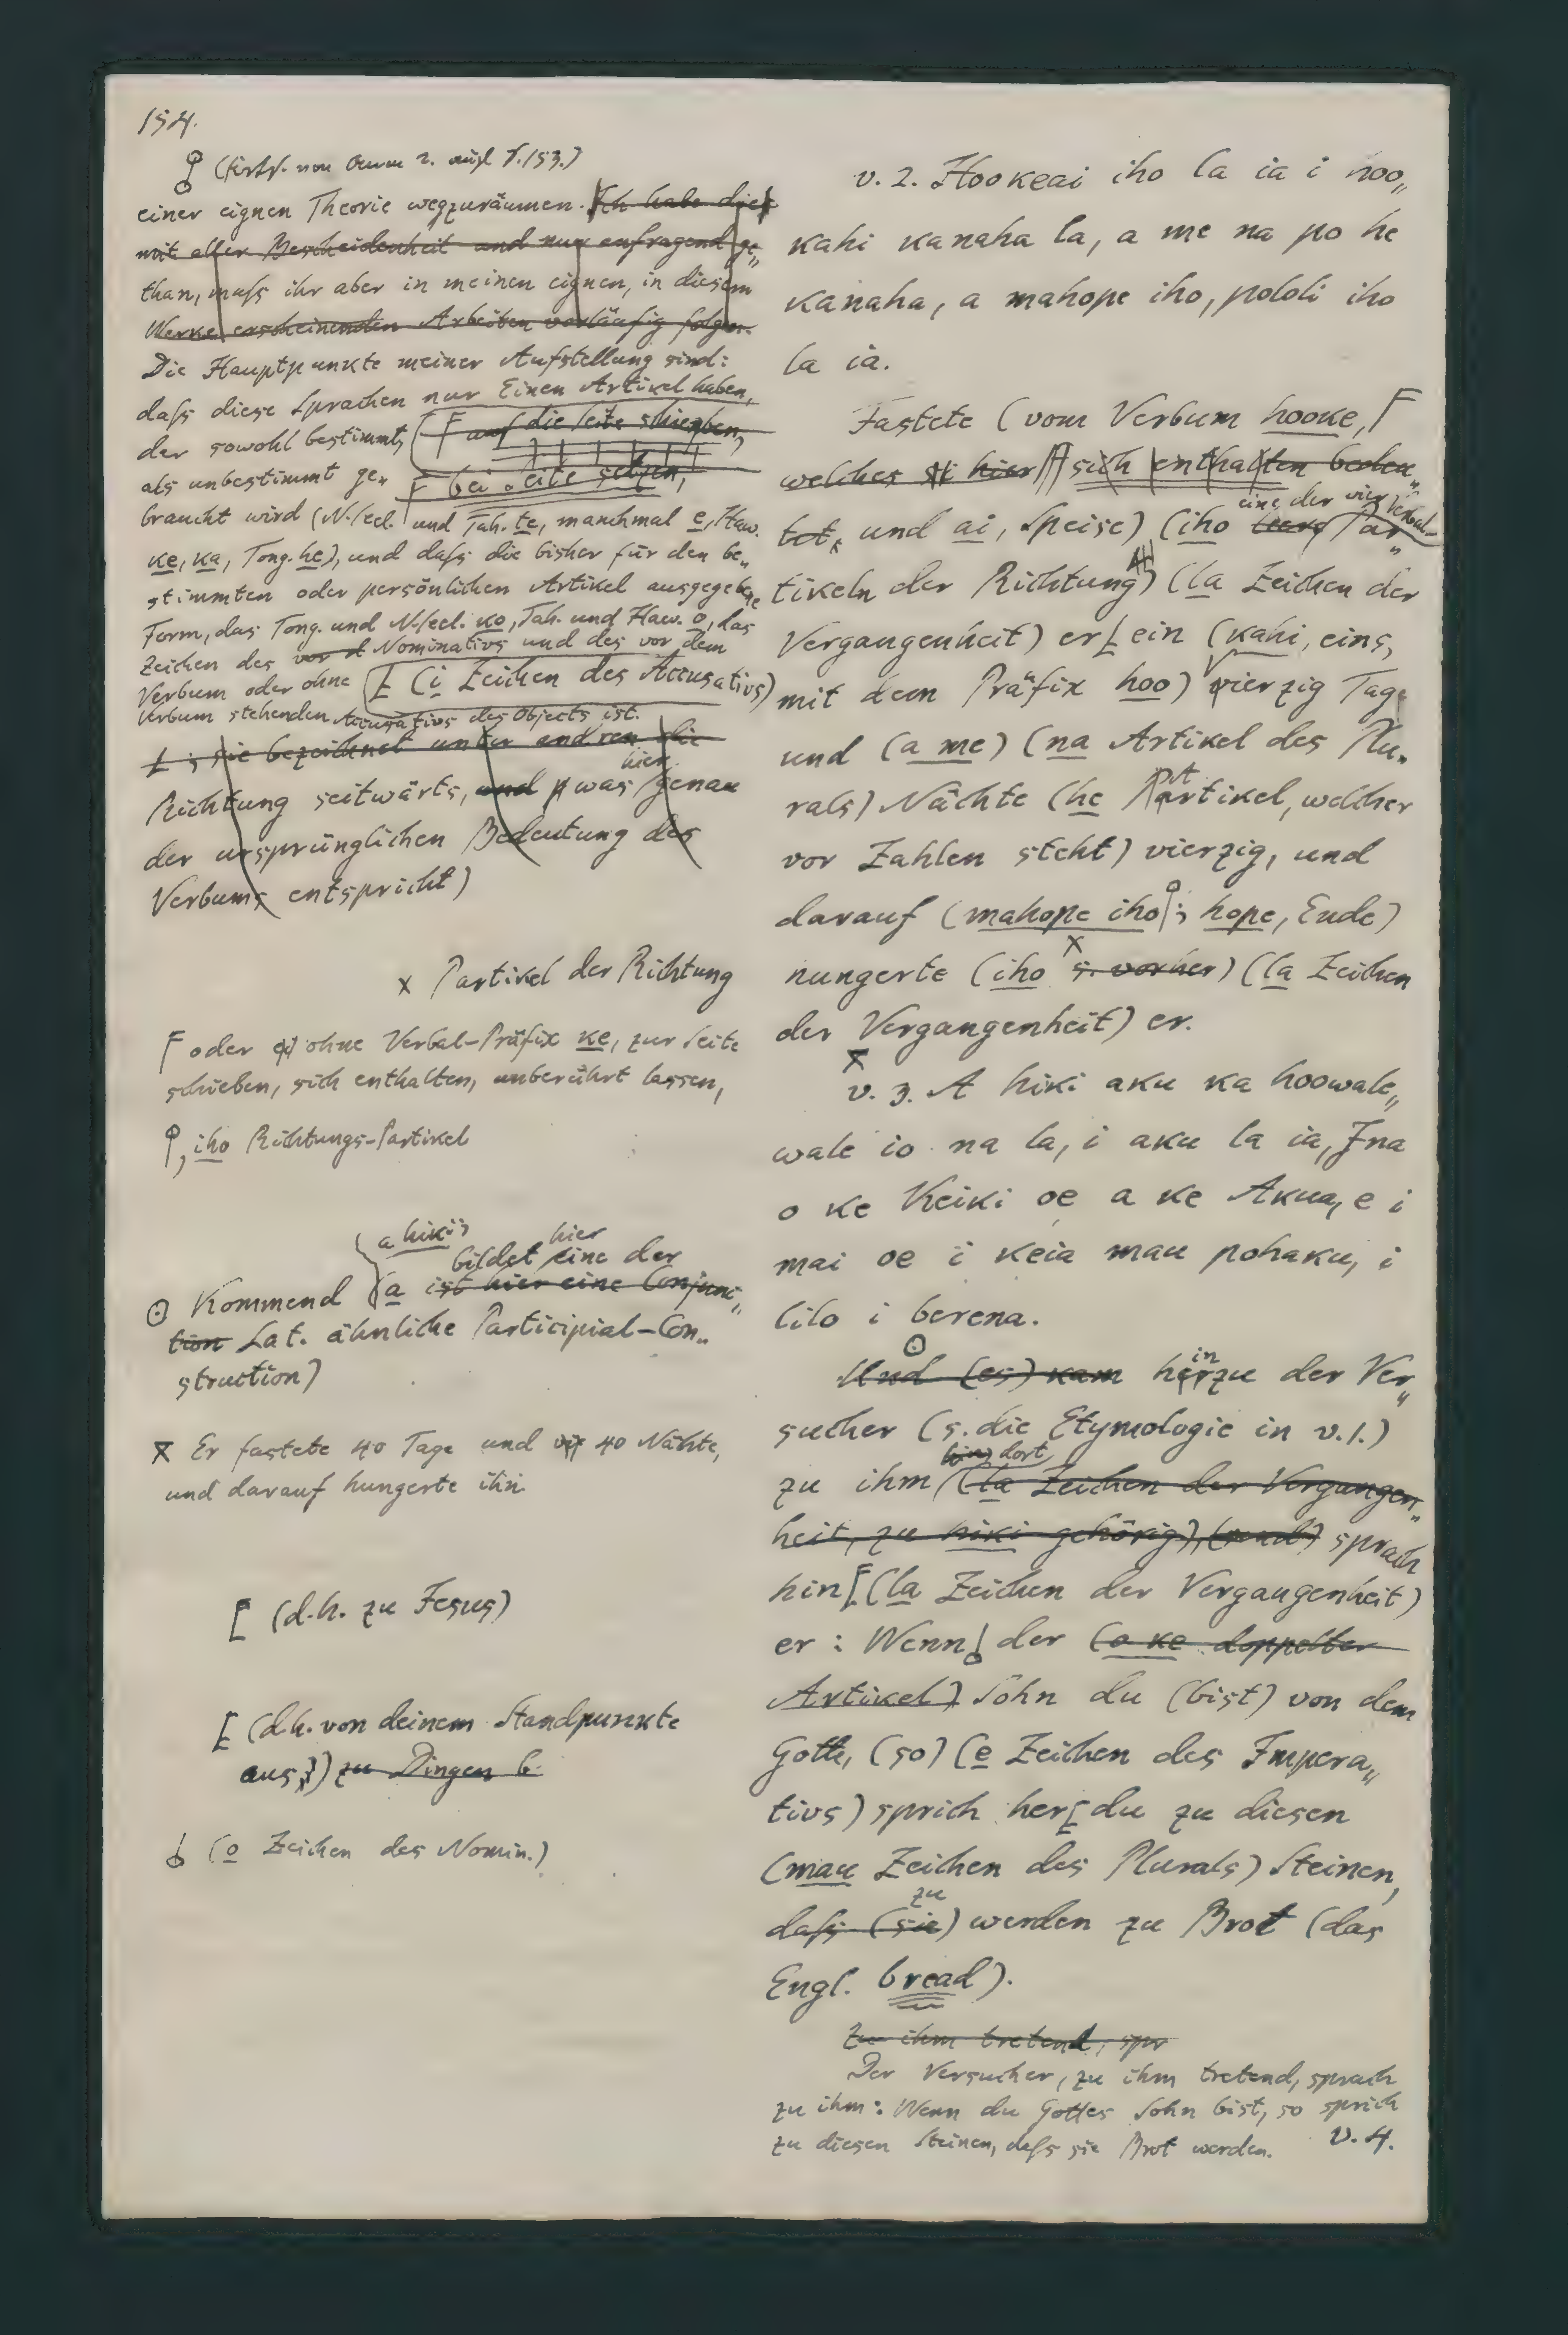 154.
(Forts. von Anm. 2. auf S. 153.)
einer eignen Theorie wegzuräumen. Ich habe dies
mit aller Bescheidenheit und nur anfragend ge„
than, muſs ihr aber in meinen eignen, in diesem
Werke erscheinenden Arbeiten vorläufig folgen.
Die Hauptpunkte meiner Aufstellung sind:
daſs diese Sprachen nur Einen Artikel haben,
der sowohl bestimmt,
als unbestimmt ge„
braucht wird (N. Seel. und Tah. te, manchmal e, Haw.
ke, ka, Tong. he), und daſs die bisher für den be„
stimmten oder persönlichen Artikel ausgegebene
Form, das Tong. und N. Seel. ko, Tah. und Haw. o, das
Zeichen des vor d Nominativs und des vor dem
Verbum oder ohne
Verbum stehenden Accusativs des Objects ist.
Γ auf die Seite schieben,
Γ bei Seite setzen,
[ (i Zeichen des Accusativs)
[ ; sie bezeichnet unter andren die
Richtung seitwärts, und was hier genau
der ursprünglichen Bedeutung des
Verbums entspricht)
x Partikel der Richtung
Γ oder ohne Verbal-Präfix ke, zur Seite
schieben, sich enthalten, unberührt lassen,
, iho Richtungs-Partikel
a hiki;
bildet hier eine der
⊙ Kommend (a ist hier eine Conjunc„
tion Lat. ähnliche Participial-Con„
struction)
x Er fastete 40 Tage und 40 Nächte,
und darauf hungerte ihn
[ (d.h. zu Jesus)
[ (d.h. von deinem Standpunkte
aus) zu Dingen b
(o Zeichen des Nomin.)
v. 2. Hookeai iho la ia i hoo„
kahi kanaha la, a me na po he
kanaha, a mahope iho, pololi iho
la ia.
Fastete (vom Verbum hooke, Γ
welches hier sich enthalten bedeu„
tet, und ai, Speise) (iho leere eine der vier Verbal-Par„
tikeln der Richtung) (la Zeichen der
Vergangenheit) er [ ein (kahi, eins,
mit dem Präfix hoo) vierzig Tage
und (a me) (na Artikel des Plu„
rals) Nächte (he Artikel, welcher
vor Zahlen steht) vierzig, und
darauf (mahope iho; hope, Ende)
hungerte (iho x s. vorher) (la Zeichen
der Vergangenheit) er.
v. 3. A hiki aku ka hoowale„
wale io na la, i aku la ia, Ina
o ke Keiki oe a ke Akua, e i
mai oe i keia mau pohaku, i
lilo i berena.
⊙
Und (es) kam herzu in der Ver„
sucher (s. die Etymologie in v. 1.)
zu ihm dort, (la Zeichen der Vergangen„
heit, zu hiki gehörig), (und) sprach
hin [ (la Zeichen der Vergangenheit)
er: Wenn der (o ke doppelter
Artikel) Sohn du (bist) von dem
Gotte, (so) (e Zeichen des Impera„
tivs) sprich her [ du zu diesen
(mau Zeichen des Plurals) Steinen,
daſs (sie) zu werden zu Brot (das
Engl. bread).
Zu ihm tretend, spr
Der Versucher, zu ihm tretend, sprach
zu ihm: Wenn du Gottes Sohn bist, so sprich
zu diesen Steinen, daſs sie Brot werden. v. 4.